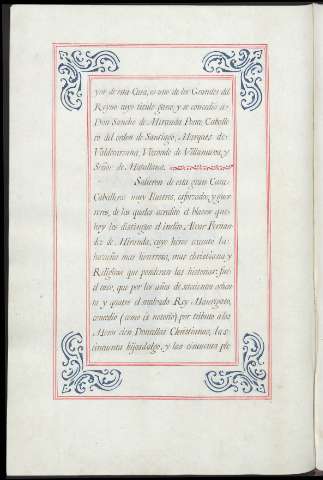 yor de esta Casa, es uno de los Grandes del
Reyno cuyo titulo gano, y se concedio à
Don Sancho de Miranda Ponce, Caballe
ro del orden de Santiago, Marques de
Valdecarzana, Vizconde de Villanueva, y
Señor de Muballana.
Salieron de esta gran Casa
Caballeros muy Ilustres, esforzados, y guer
reros, de los quales acredito el blason que
hoy les distingue el inclito Alvar Fernan
dez de Miranda, cuyo héroe executo la
hazaña mas famosa, mas christiana y
Religiosa que ponderan las historias: fue
el caso, que por los años de setecientos ochen
ta y quatro el malvado Rey Mauregato,
concedio (como es notorio) por tributo a los
Moros cien Doncellas Christianas, las
cincuenta hijosdalgo, y las cincuenta ple